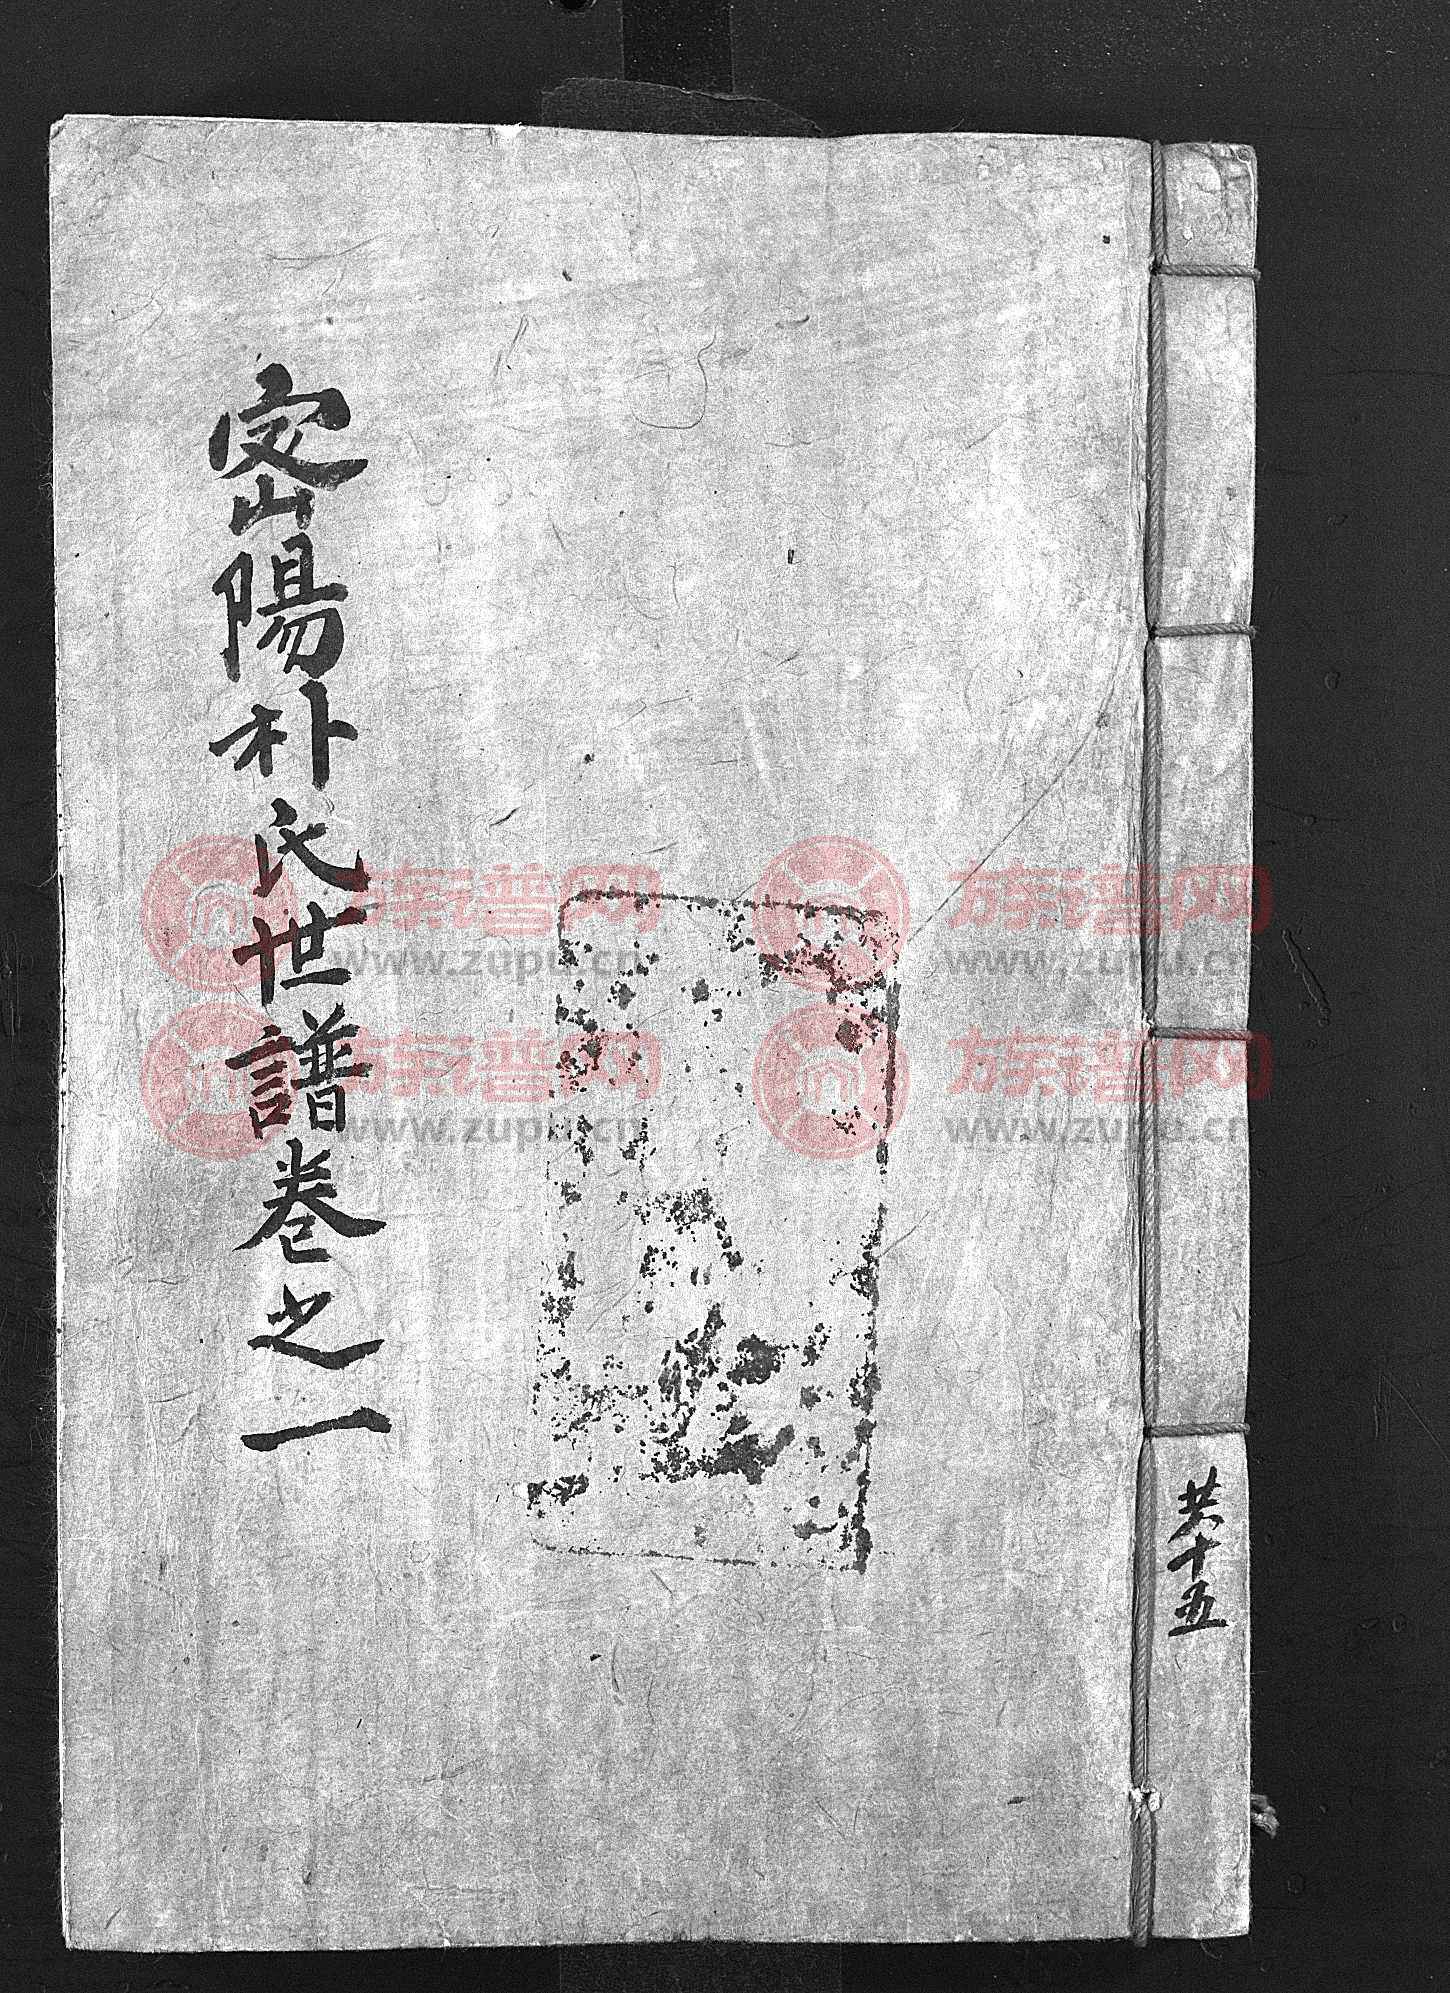 密陽朴氏世譜卷之一
共十五
族谱网
www.zupu.cn
族谱网
www.zupu.cn
族谱网
www.zupu.cn
族谱网
www.zupu.cn